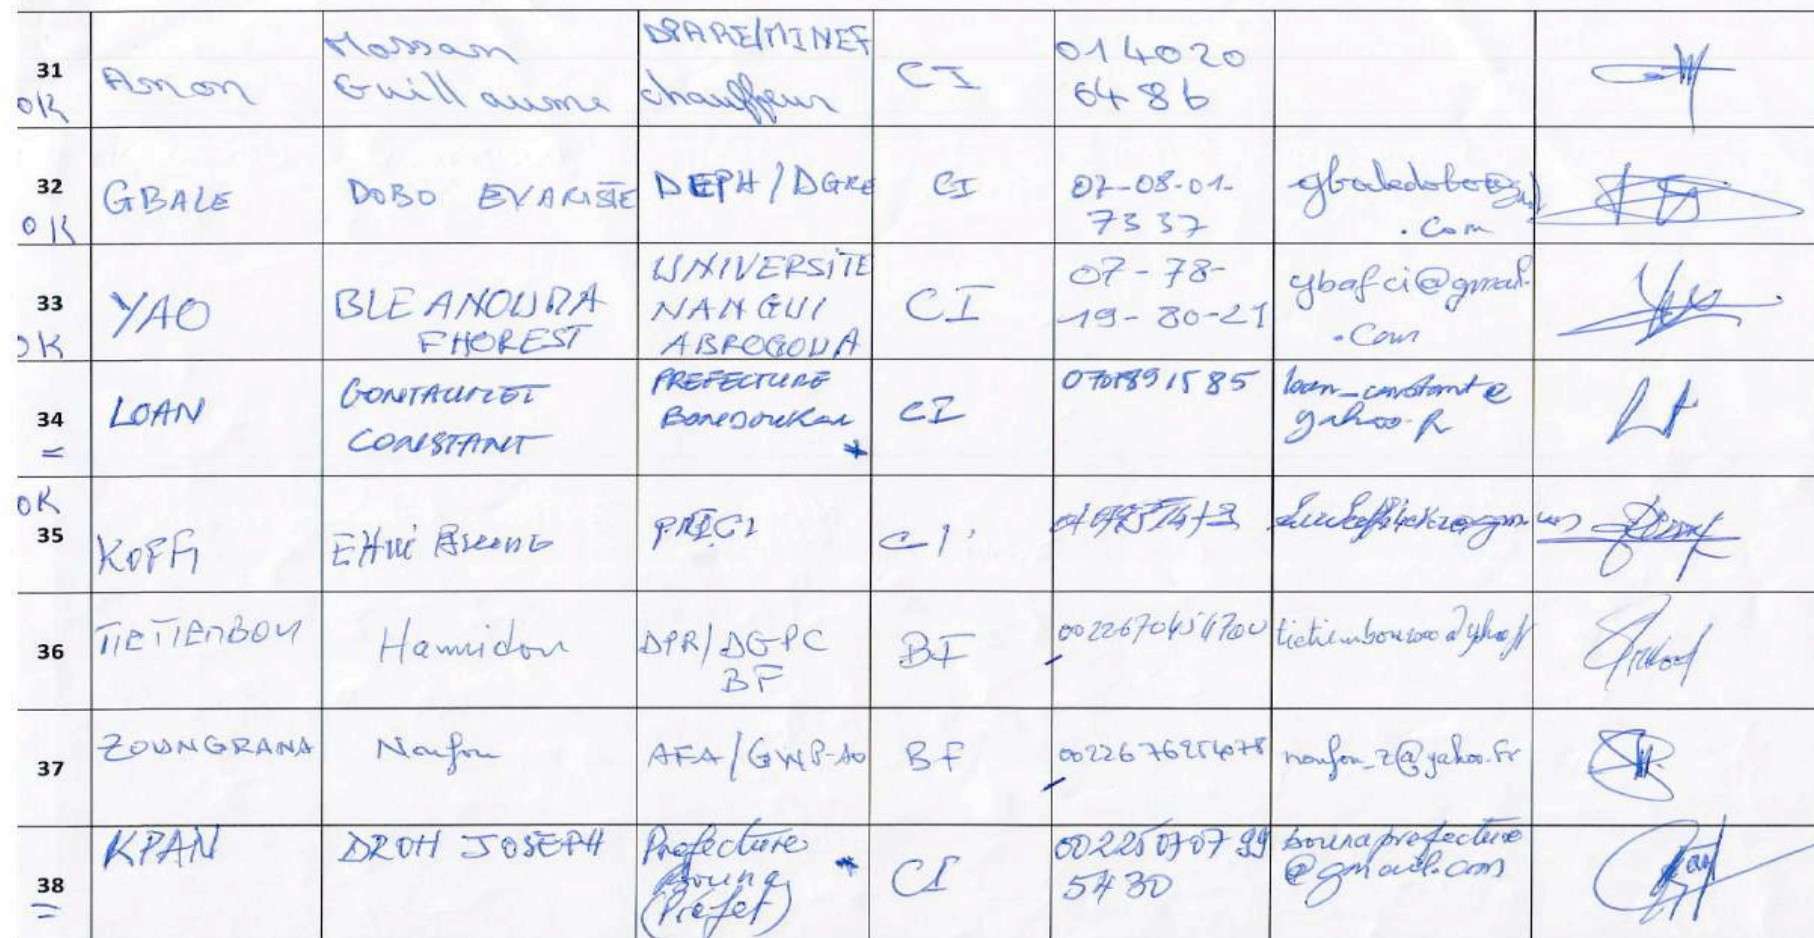 31 OK Amon Massan Guillaume DPARE/MINEF chauffeur CI 014020 6486
32 OK GBALE DOBO EVARISTE DEPH/DGRE CI 07-08-01- 7337 .com
33 OK YAO BLE ANOUMA FHOREST UNIVERSITE NANGUI ABROGOUA CI 07-78- 19-80-21 ybafci@gmail .com
34 = LOAN GONTAUMET CONSTANT PREFECTURE BONDOUKOU CI loan_constant@ yahoo.fr
OK 35 KOFFI EHUI CI
36 TIETIEMBOU Hamidou DPR/DGPC BF BF
37 ZOUNGRANA Noufou AFA/GWP-AO BF noufou_z@yahoo.fr
38 = KPAN DROH JOSEPH Prefecture Bouna (Préfet) CI 002250707 99 5430 bounaprefecture @gmail.com